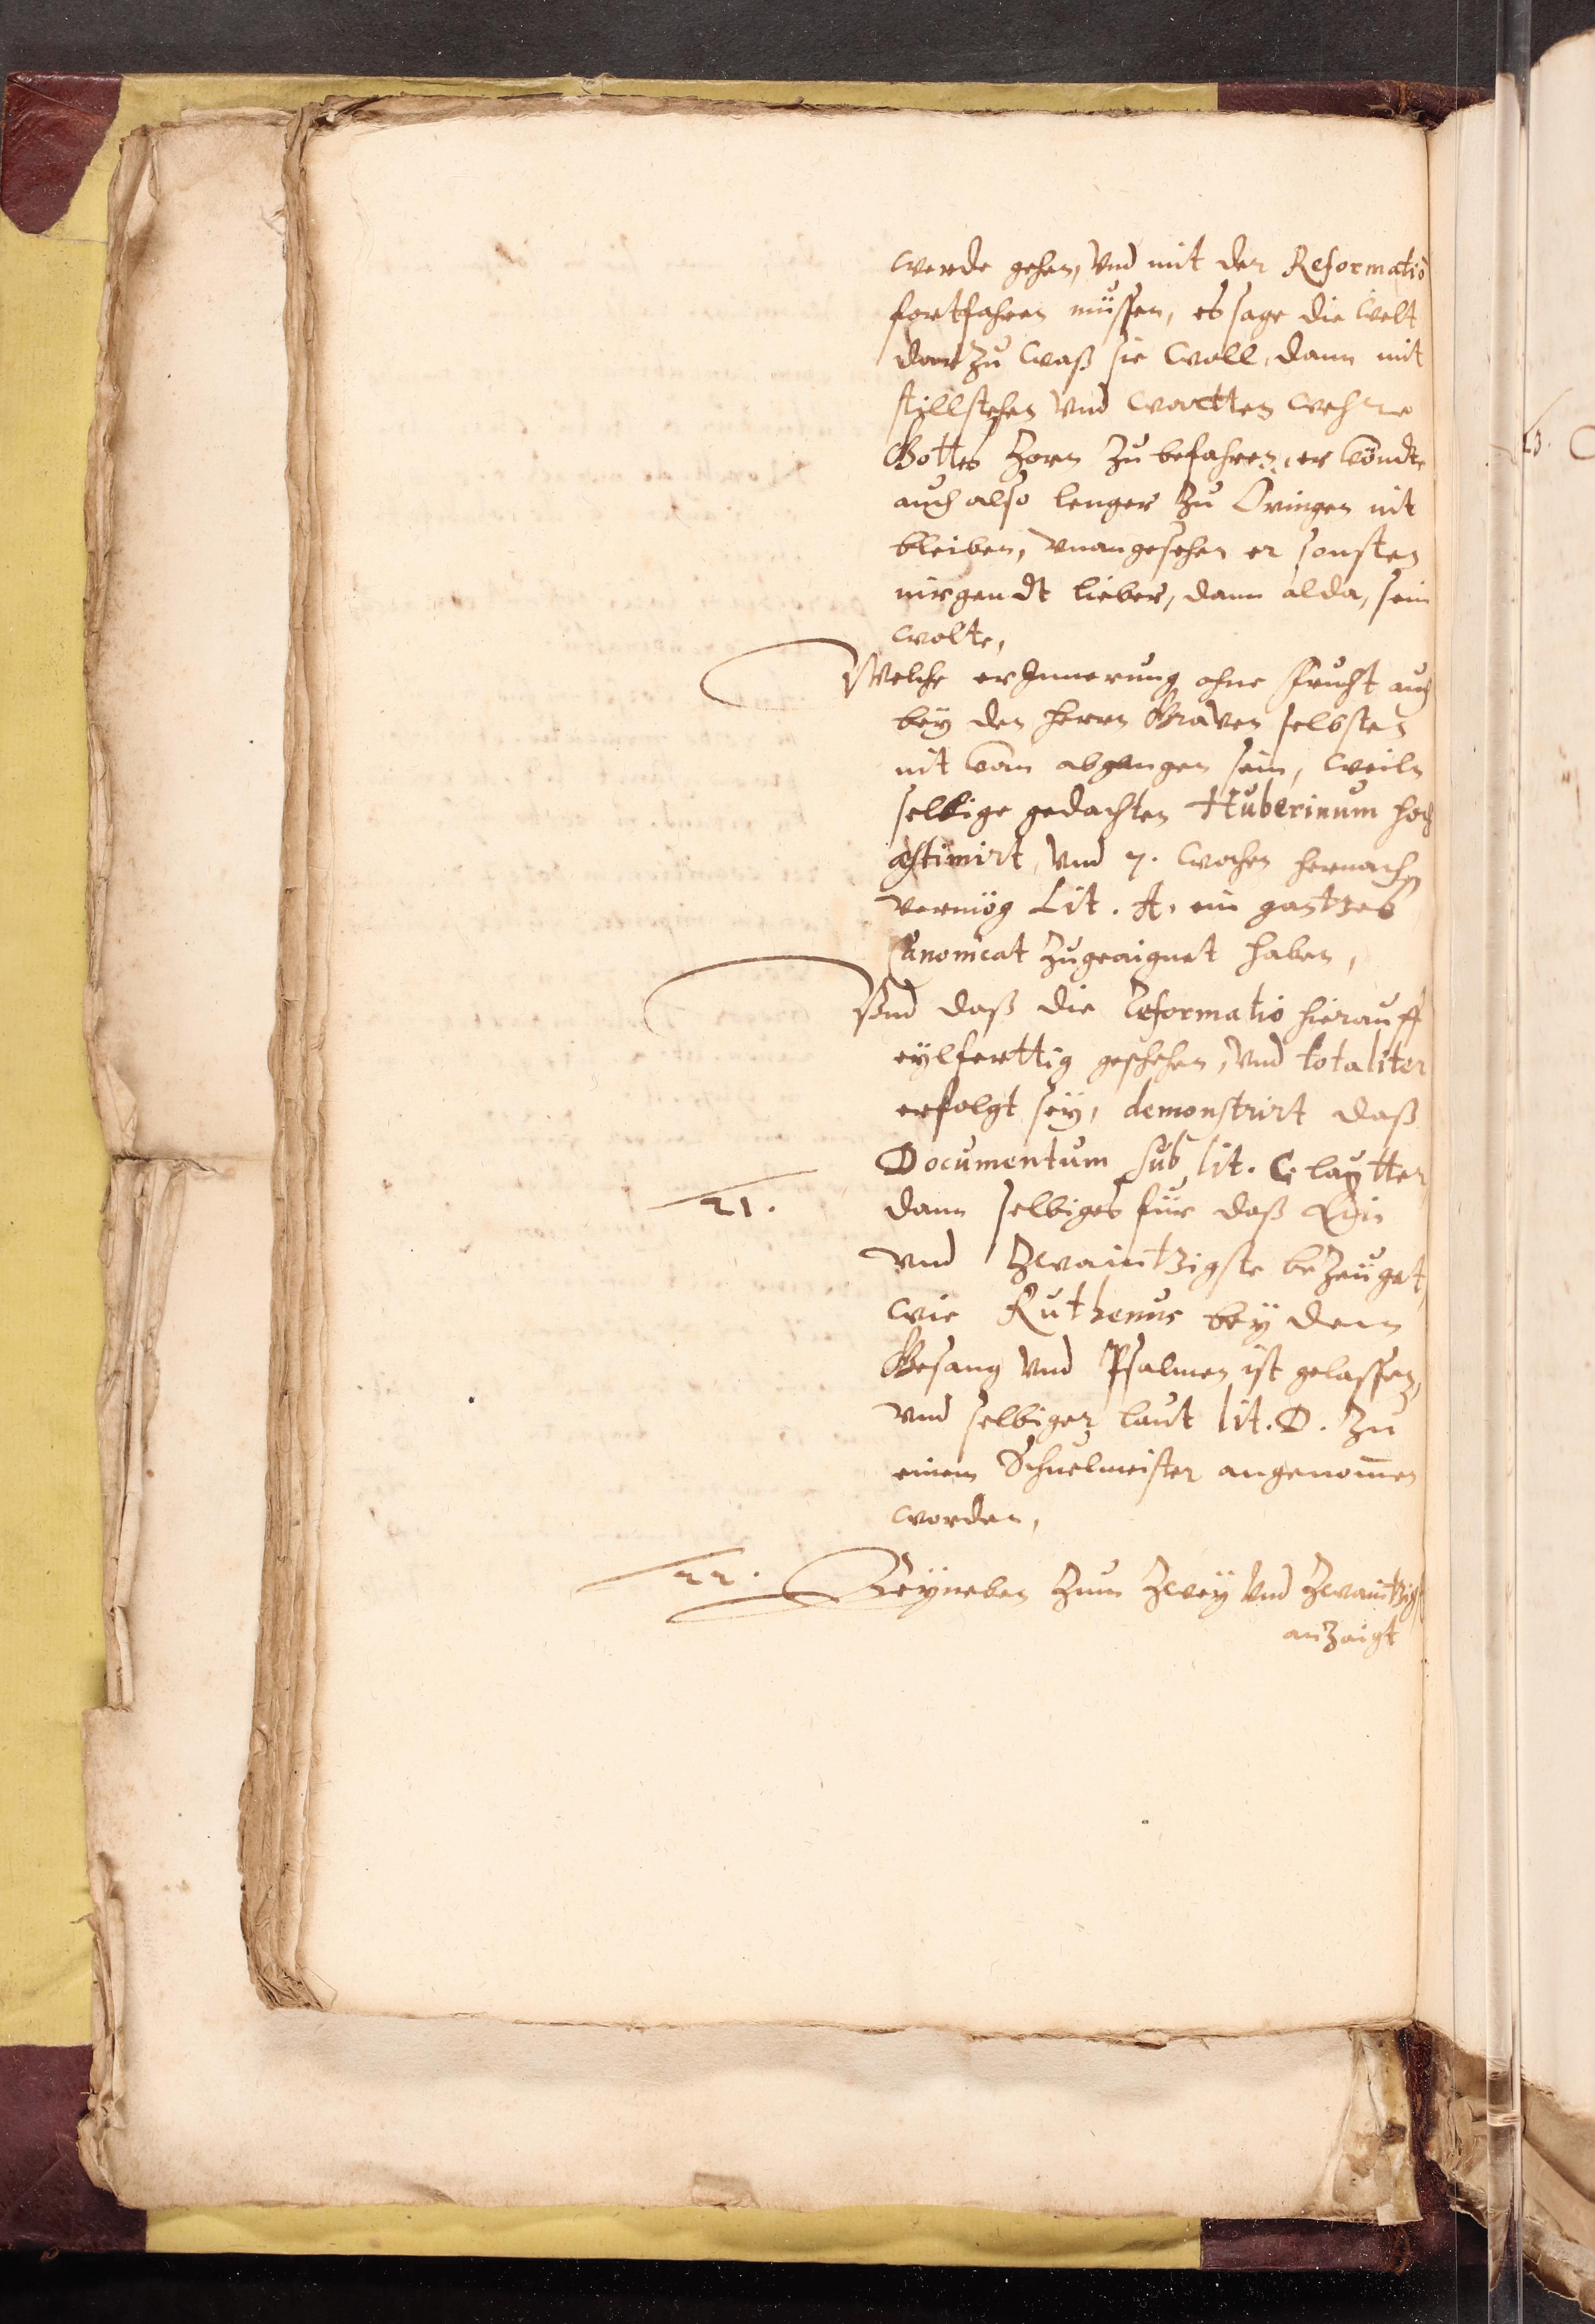 werde gehen, vnd mit der Reformatiō
fortfahren müssen, es sage die Welt
darzu waß sie woll, dann mit
stillstehen vnd wartten wehre
Gottes Zorn zu befahren, er köndte
auch also lenger zu Öringen nit
bleiben, vnangesehen er sonsten
nirgendt lieber, dann alda, sein
wolte,
Welche erInnerung ohne frucht auch
bey den herrn Graven selbsten
nit kan abgangen sein, weiln
selbige gedachten Huberinum hoch
æstimirt, vnd 7. wochen hernach
vermög Lit. A. ein gantzes
Canonicat zugeaignet haben,
Vnd daß die Reformatio hierauff
eylferttig geschehen, vnd totaliter
erfolgt sey, demonstrirt daß
Documentum sub lit. C. lautter
21.
dann selbiges für daß Ein
vnd zwaintzigste bezeuget,
wie Ruthenus bey dem
Gesang vnd Psalmen ist gelassen,
vnd selbiger laut lit. D. zu
einem Schuelmeister angenom̄en
worden,
22.
Beyneben zum zwey vnd zwaintzigst
anzaigt
23.